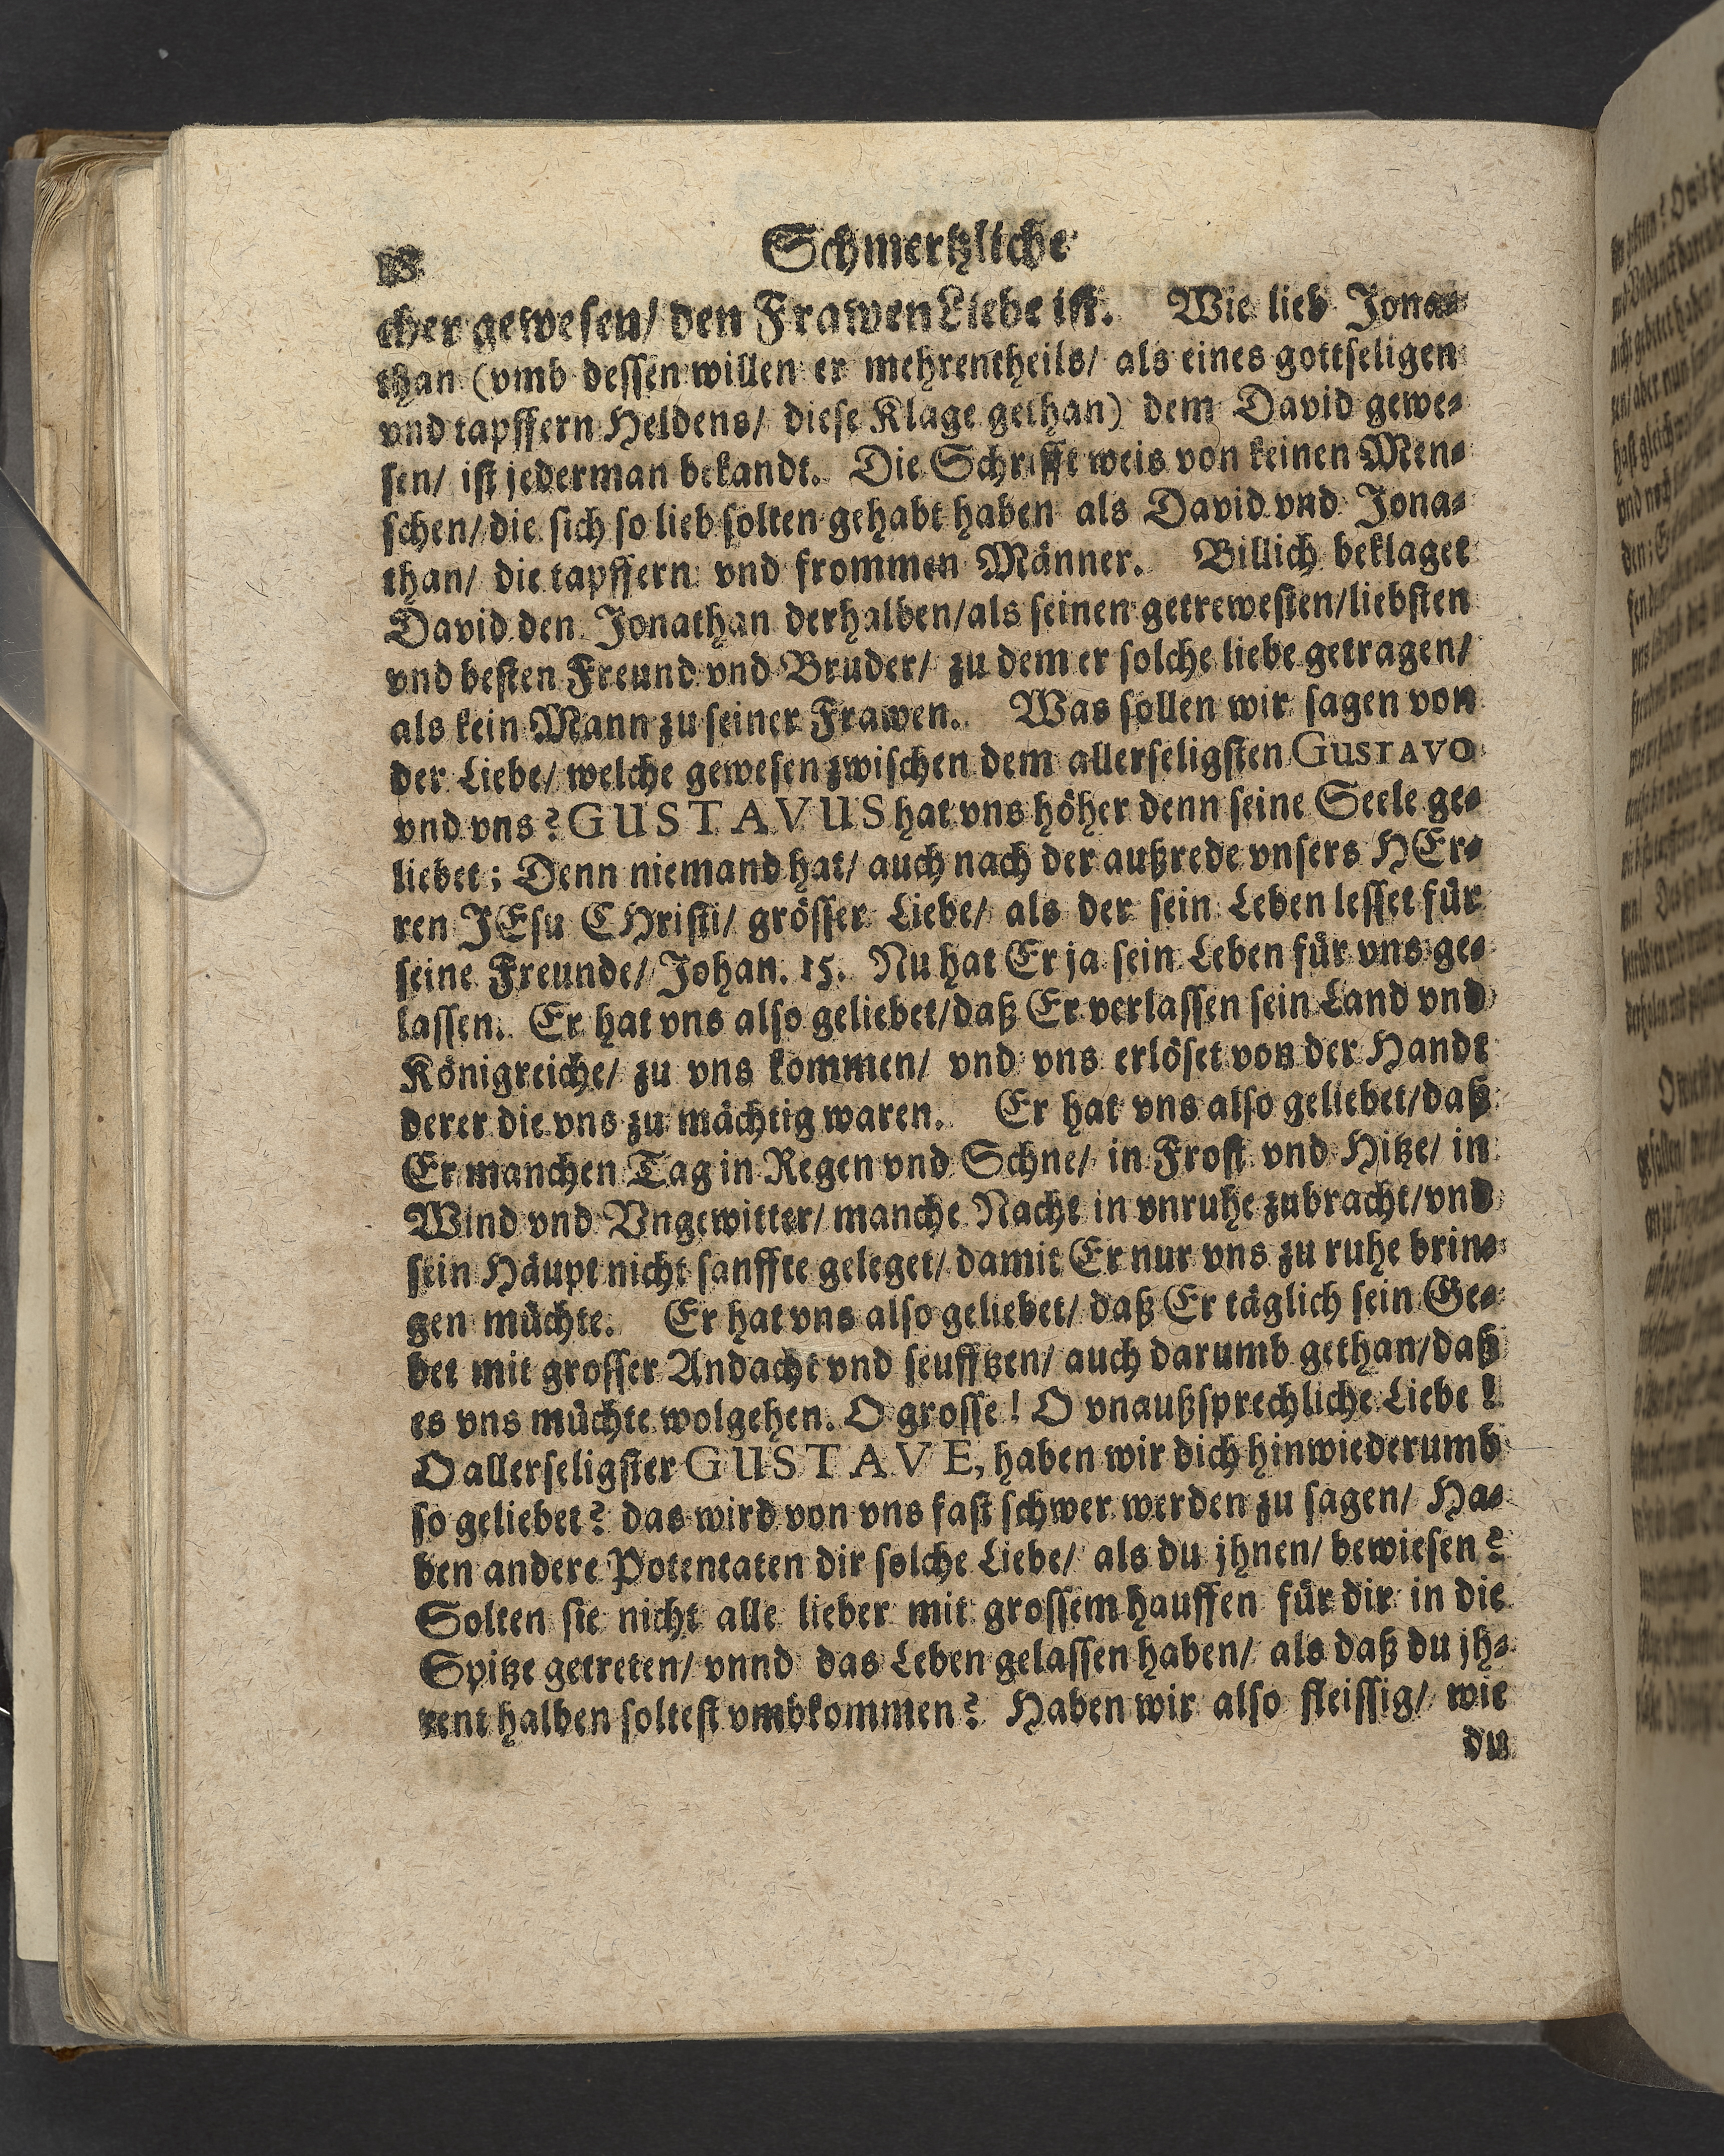 Schmertzliche
cher gewesen/ den Frawen Liebe ist. Wie lieb Jona-
than (vmb dessen willen er mehrentheils/ als eines gottseligen
vnd tapffern Heldens/ diese Klage gethan) dem David gewe-
sen/ ist jederman bekandt. Die Schrifft weis von keinen Men-
schen/ die sich so lieb solten gehabt haben als David vnd Jona-
than/ die tapffern vnd frommen Männer. Billich beklaget
David den Jonathan derhalben/ als seinen getrewesten/ liebsten
vnd besten Freund vnd Bruder/ zu dem er solche liebe getragen/
als kein Mann zu seiner Frawen. Was sollen wir sagen von
der Liebe/ welche gewesen zwischen dem allerseligsten GUSTAVO
vnd vns? GUSTAVUS hat vns höher denn seine Seele ge-
liebet; Denn niemand hat/ auch nach der außrede vnsers HEr-
ren JEsu CHristi/ grösser Liebe/ als der sein Leben lesset für
seine Freunde/ Johan. 15. Nu hat Er ja sein Leben für vns ge-
lassen. Er hat vns also geliebet/ daß Er verlassen sein Land vnd
Königreiche/ zu vns kommen/ vnd vns erlöset von der Handt
derer die vns zu mächtig waren. Er hat vns also geliebet/ daß
Er manchen Tag in Regen vnd Schne/ in Frost vnd Hitze/ in
Wind vnd Vngewitter/ manche Nacht in vnruhe zubracht/ vnd
sein Häupt nicht sanffte geleget/ damit Er nur vns zu ruhe brin-
gen müchte. Er hat vns also geliebet/ daß Er täglich sein Ge-
bet mit grosser Andacht vnd seufftzen/ auch darumb gethan/ daß
es vns müchte wolgehen. O grosse! O vnaußsprechliche Liebe!
O allerseligster GUSTAVE, haben wir dich hinwiederumb
so geliebet? das wird von vns fast schwer werden zu sagen/ Ha-
ben andere Potentaten dir solche Liebe/ als du jhnen/ bewiesen?
Solten sie nicht alle lieber mit grossem hauffen für dir in die
Spitze getreten/ vnnd das Leben gelassen haben/ als daß du jh-
rent halben soltest vmbkommen? Haben wir also fleissig/ wie
du